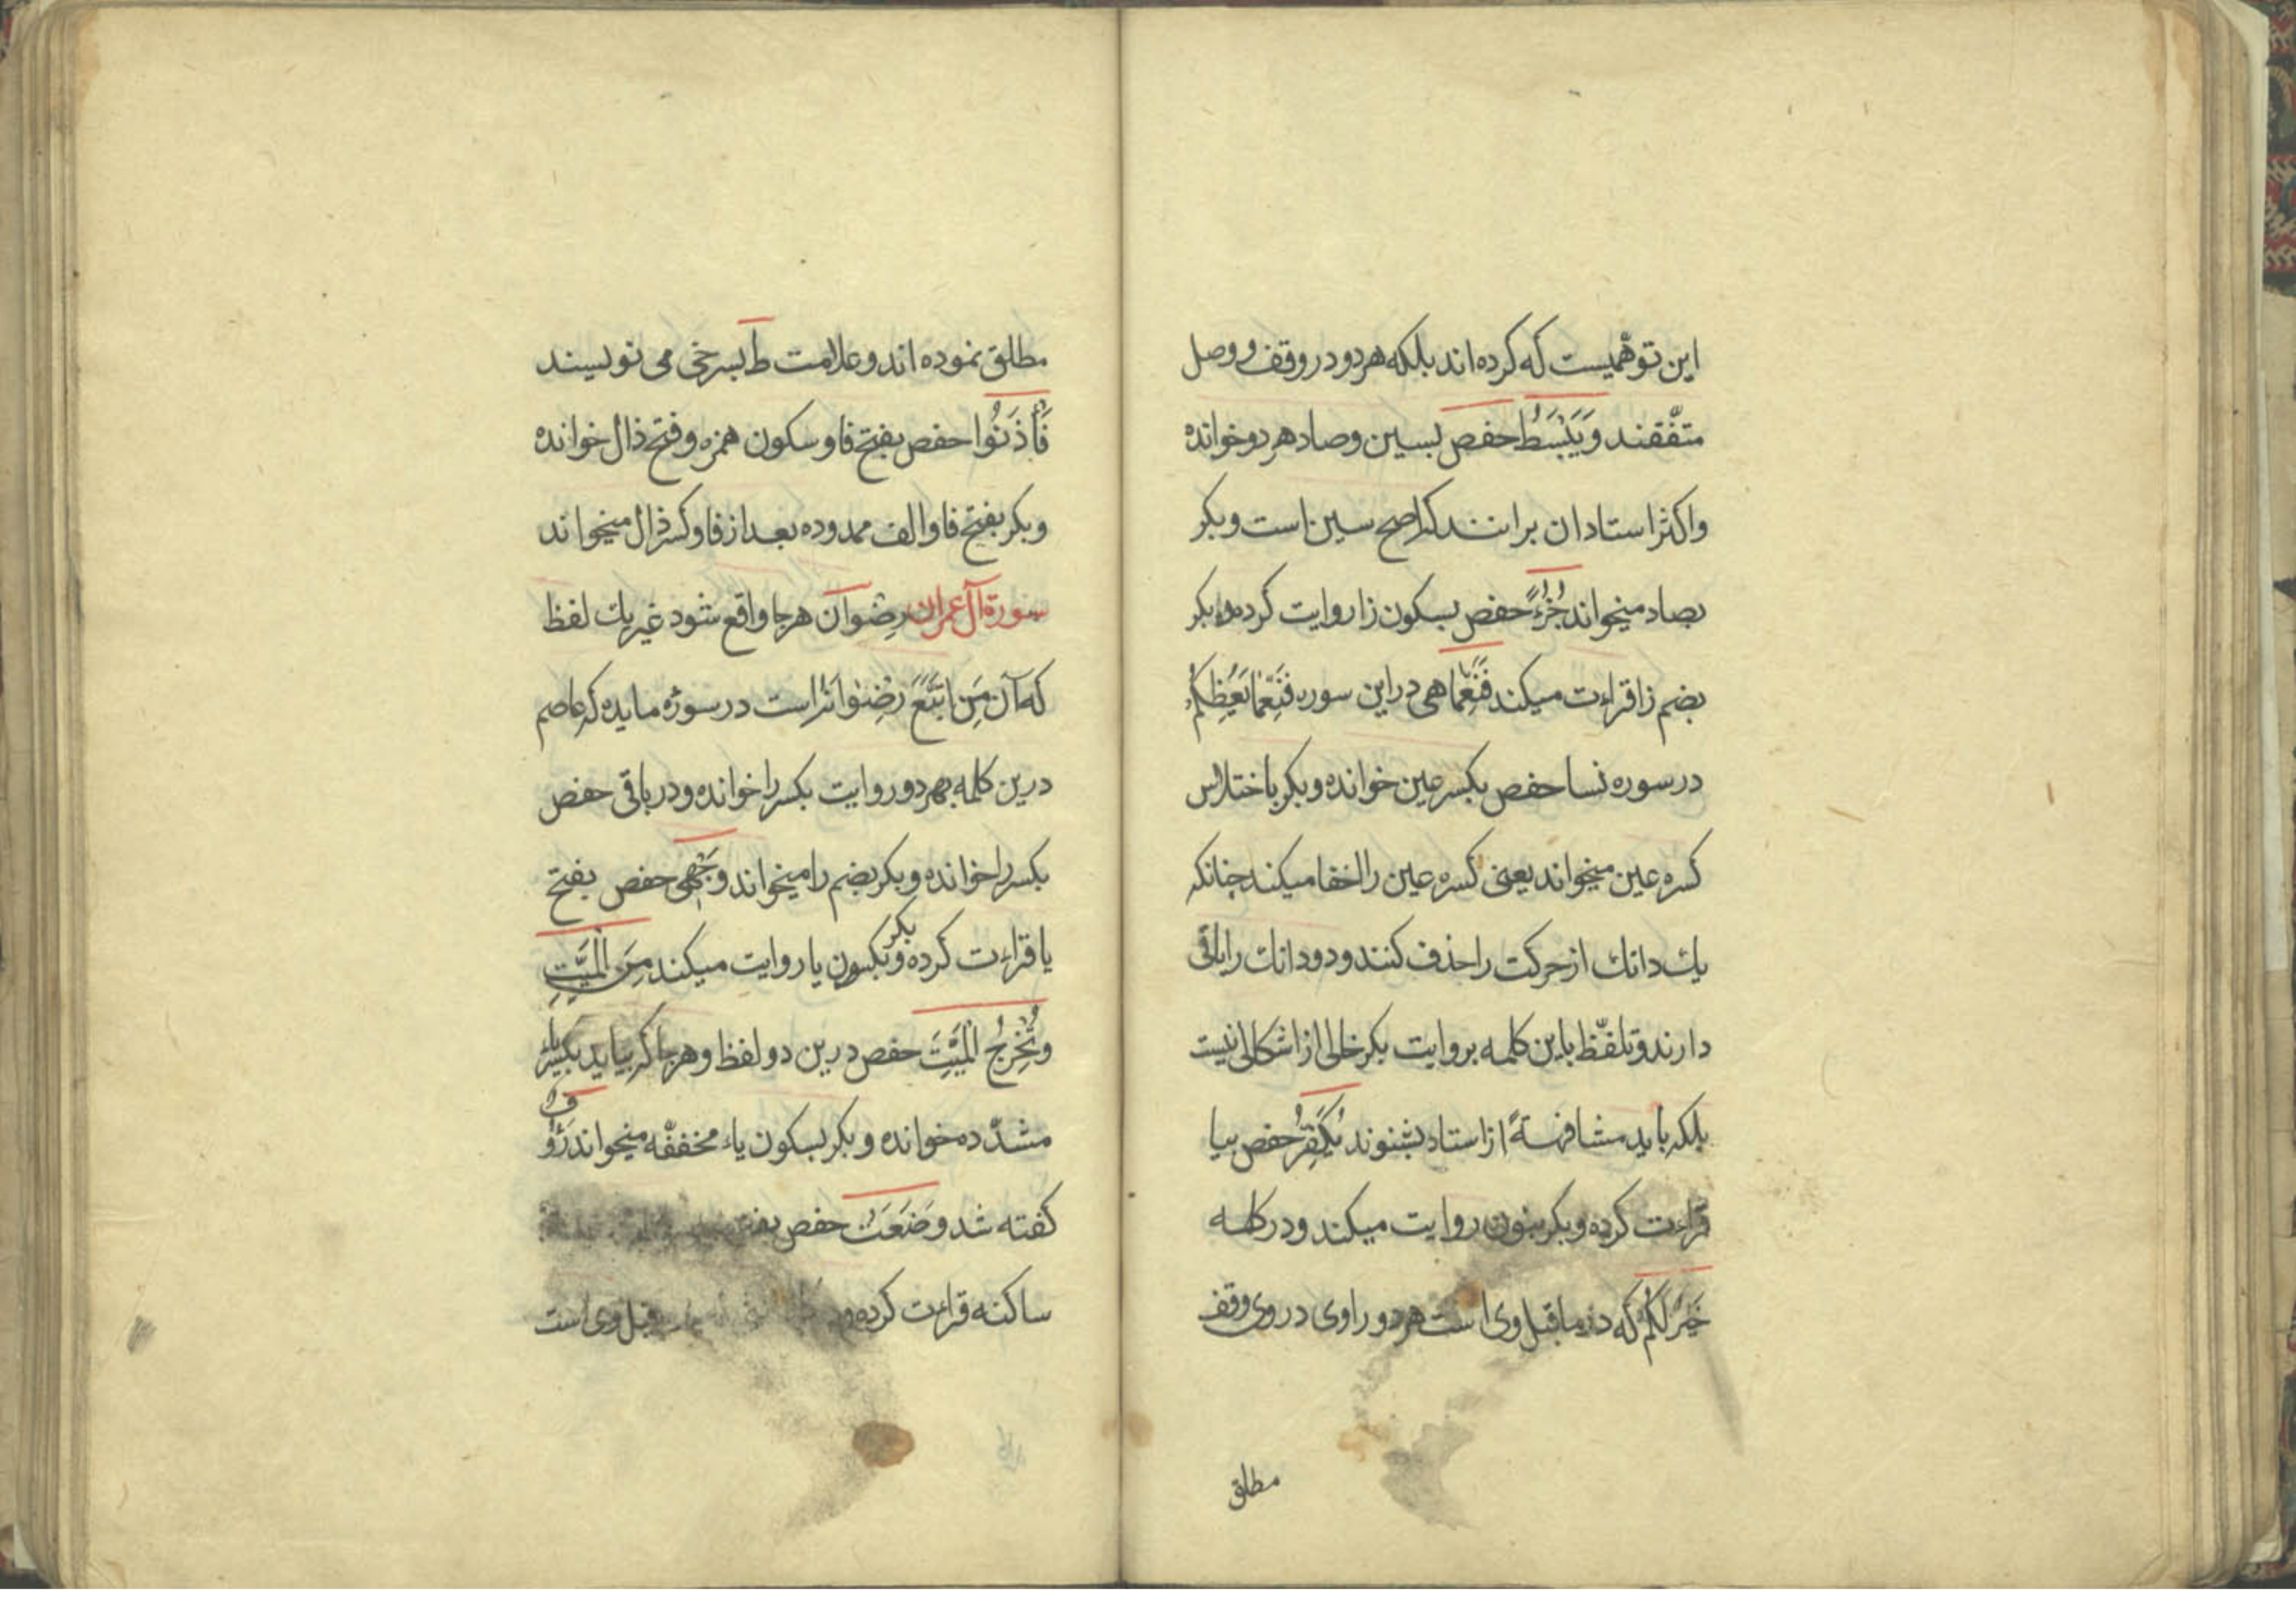 این توهّمیست که کرده اند بلکه هر دو در وقف و وصل
متفّقند وَیَبْسُطُ حفص بسین و صاد هر دو خوانده
و اکثر استادان برانند که اصح سین است و بکر
بصاد میخواند جُزْءً حفص بسکون زا روایت کرده و بکر
بضم زا قراءت میکند فَنِعِمّا هی در این سوره فَنِعِمّا یَعِظُکُمْ
در سوره نسا حفص بکسر عین خوانده و بکر باختلاس
کسره عین میخواند یعنی کسره عین را اخفا میکند چنانکه
یك دانك از حرکت را حذف کنند و دو دانك را باقی
دارند و تلفّظ باین کلمه بروایت بکر خالی از اشکالی نیست
بلکه باید مشافهةً از استاد بشنوند یُکَفِّرُ حفص بیا
قراءت کرده و بکر بنون روایت میکند و در کلمه
خَیْرٌ لَکُمْ که در ماقبل وی است هر دو راوی در وی وقف
مطلق
مطلق نموده اند و علامت ط بسرخی می نویسند
فَأْذَنُوا حفص بفتح فا و سکون همزه و فتح ذال خوانده
و بکر بفتح فا و الف ممدوده بعد از فا و کسر ذال میخواند
سورة آل عمران رِضْوان هر جا واقع شود غیر یك لفظ
که آن مَنِ اتَّبَعَ رِضْوانَهُ است در سورهٔ مایده که عاصم
درین کلمه بهر دو روایت بکسر را خوانده و در باقی حفص
بکسر را خوانده و بکر بضم را میخواند وَجْهِیَ حفص بفتح
یا قراءت کرده و بکر بسکون یا روایت میکند مِنَ الْمَیِّتِ
وَتُخْرِجُ الْمَیِّتَ حفص درین دو لفظ و هر جا که بیاید بکسر یاء
مشدّده خوانده و بکر بسکون یاء مخففّه میخواند رَؤُفٌ
کفته شد وَضَعَتْ حفص بفتح
ساکنه قراءت کرده و قبل وی است